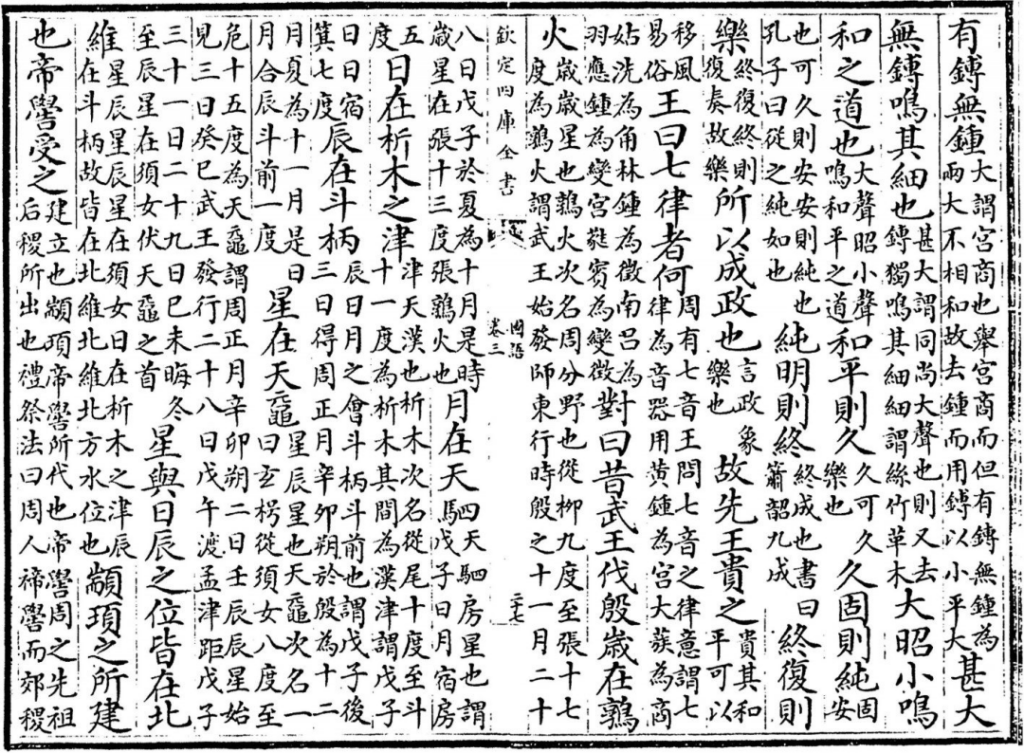 有鏄無鍾大謂宮商也舉宮商而但有鏄無鍾為兩大不相和故去鍾而用鏄以小平大甚大
無鏄鳴其細也甚大謂同尚大聲也則又去鏄獨鳴其細細謂絲竹革木大昭小鳴
和之道也大聲昭小聲鳴和平之道和平則久久可久樂也久固則純固安
也可久則安安則純也孔子曰從之純如也純明則終終成也書曰簫韶九成終復則
樂終復終則復奏故樂所以成政也言政象樂也故先王貴之貴其和平可以
移風易俗王曰七律者何周有七音王問七音之律意謂七律為音器用黃鍾為宮大蔟為商
姑洗為角林鍾為徵南呂為羽應鍾為變宮蕤賓為變徵對曰昔武王伐殷歲在鶉
火歲歲星也鶉火次名周分野也從柳九度至張十七度為鶉火謂武王始發師東行時殷之十一月二十
欽定四庫全書
國語
卷三
二十七
八日戊子於夏為十月是時歲星在張十三度張鶉火也月在天駟天駟房星也謂戊子日月宿房
五度日在析木之津津天漢也析木次名從尾十度至斗十一度為析木其間為漢津謂戊子
日日宿箕七度辰在斗柄辰日月之會斗柄斗前也謂戊子後三日得周正月辛卯朔於殷為十二
月夏為十一月是日月合辰斗前一度星在天黿星辰星也天黿次名一曰玄枵從須女八度至
危十五度為天黿謂周正月辛卯朔二日壬辰辰星始見三日癸巳武王發行二十八日戊午渡孟津距戊子
三十一日二十九日己未晦冬至辰星在須女伏天黿之首星與日辰之位皆在北
維星辰星辰星在須女日在析木之津辰在斗柄故皆在北維北維北方水位也顓頊之所建
也帝嚳受之建立也顓頊帝嚳所代也帝嚳周之先祖后稷所出也禮祭法曰周人禘嚳而郊稷